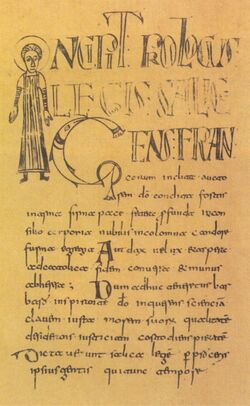 INCIPIT PROLOGUS
LEGIS SALICE
GENS FRAN
corum inclita aucto
rem do condita fortis
in arma firma pacis fundata in con
silio corporea nobilis incolumna candore
forma egregia Audax velox
catholica fidem conversa emunis
ab herese Dum adhuc teneretur bar
bara inspirante do inquerens sciencia
clavem iuxta morem suorum qualitatem
desiderans iusticiam custodiens pietatem
Dictaverunt salica lege per proceris
ipsius gentis qui tunc tempore